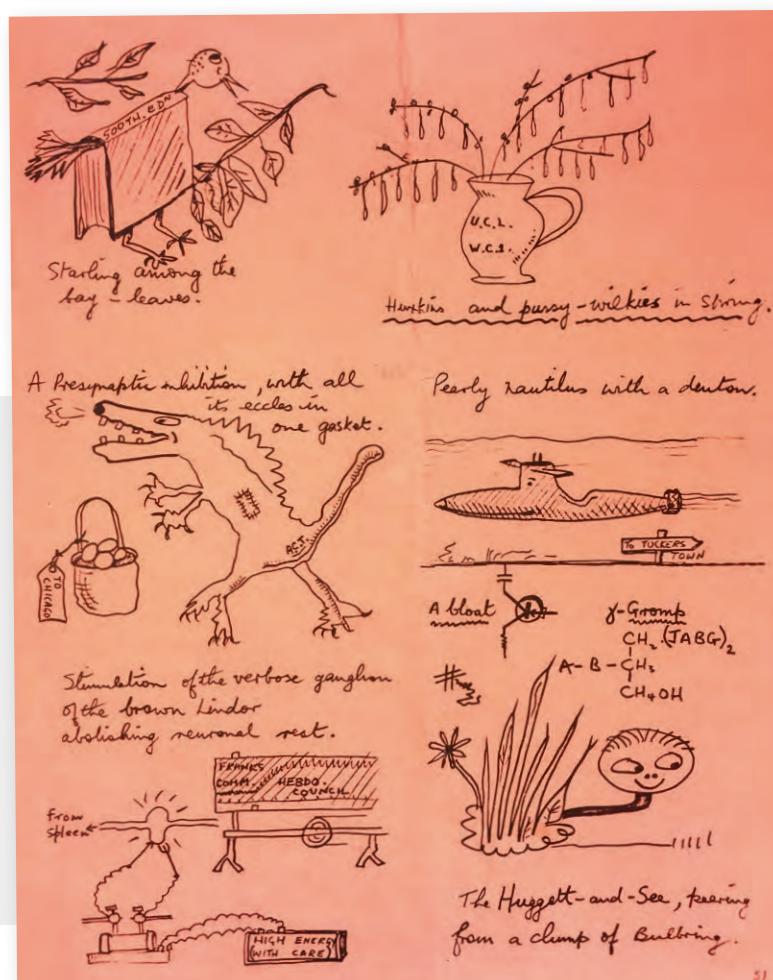 500TH. EDN
Starling among the
bay-leaves.
U.C.L.
W.C.1.
Hunkins and pussy-wilkies in String.
A Presynaptic inhibition, with all
its eccles in
one gasket.
TO
CHICAGO
A.C.T.
Pearly nautilus with a denton.
TO TUCKERS
TOWN
A bloat
γ-Gromp
CH₂.(JABG)₂
A-B-CH₃
CH₄OH
Stimulation of the verbose ganglion
of the brown Lindor
abolishing neuronal rest.
FRANKS
COMM.
HEBDO.
COUNCIL
From
spleen
HIGH ENERGY
(WITH CARE)
The Huggett-and-See, peering
from a clump of Bulbring.